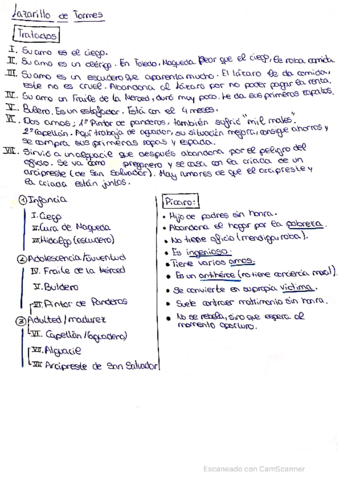 Lazarillo de Tormes
Tratados
I. Su amo es el ciego.
II. Su amo es un clérigo. En Toledo, Maqueda. Peor que el ciego, es roba comida
III. Su amo es un escudero que aparenta mucho. El lázaro le da comida,
este no es cruel. Abandona al lázaro por no poder pagar la renta.
IV. Su amo un Fraile de la Merced, duró muy poco. Le da sus primeros zapatos.
V. Buldero. Es un estafador. Está con él 4 meses.
VI. Dos amos: 1º Pintor de panderos. también sufrió "mil males".
2º Capellán. Aquí trabaja de aguador, su situación mejora, consigue ahorros y
se compra sus primeras ropas y espada.
VII. Sirvió a un alguacil que después abandona por el peligro del
oficio. Se va como pregonero y se casa con la criada de un
arcipreste (de San Salvador). Hay rumores de que el arcipreste y
la criada están juntos.
① Infancia
I. Ciego
II. Cura de Maqueda
III. Hidalgo (escudero)
② Adolescencia/Juventud
IV. Fraile de la Merced
V. Buldero
VI. Pintor de Panderos
③ Adultez/madurez
VI. Capellán (aguadero)
VII. Alguacil
VII. Arcipreste de San Salvador
Pícaro:
• Hijo de padres sin honra.
• Abandona el hogar por la pobreza.
• No tiene oficio (mendiga, roba).
• Es ingenioso.
• Tiene varios amos.
• Es un antihéroe (no tiene conciencia moral).
• Se convierte en su propia víctima.
• Suele contraer matrimonio sin honra.
• No se rebela, sino que espera al
momento oportuno.
Escaneado con CamScanner